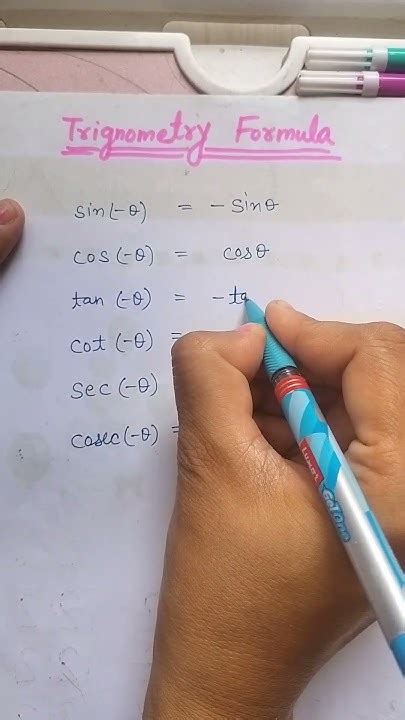 Trignometry Formula
sin(-θ) = - sinθ
cos(-θ) = cosθ
tan(-θ) = - ta
cot(-θ) =
sec(-θ)
cosec(-θ) =
Luxor GelOne